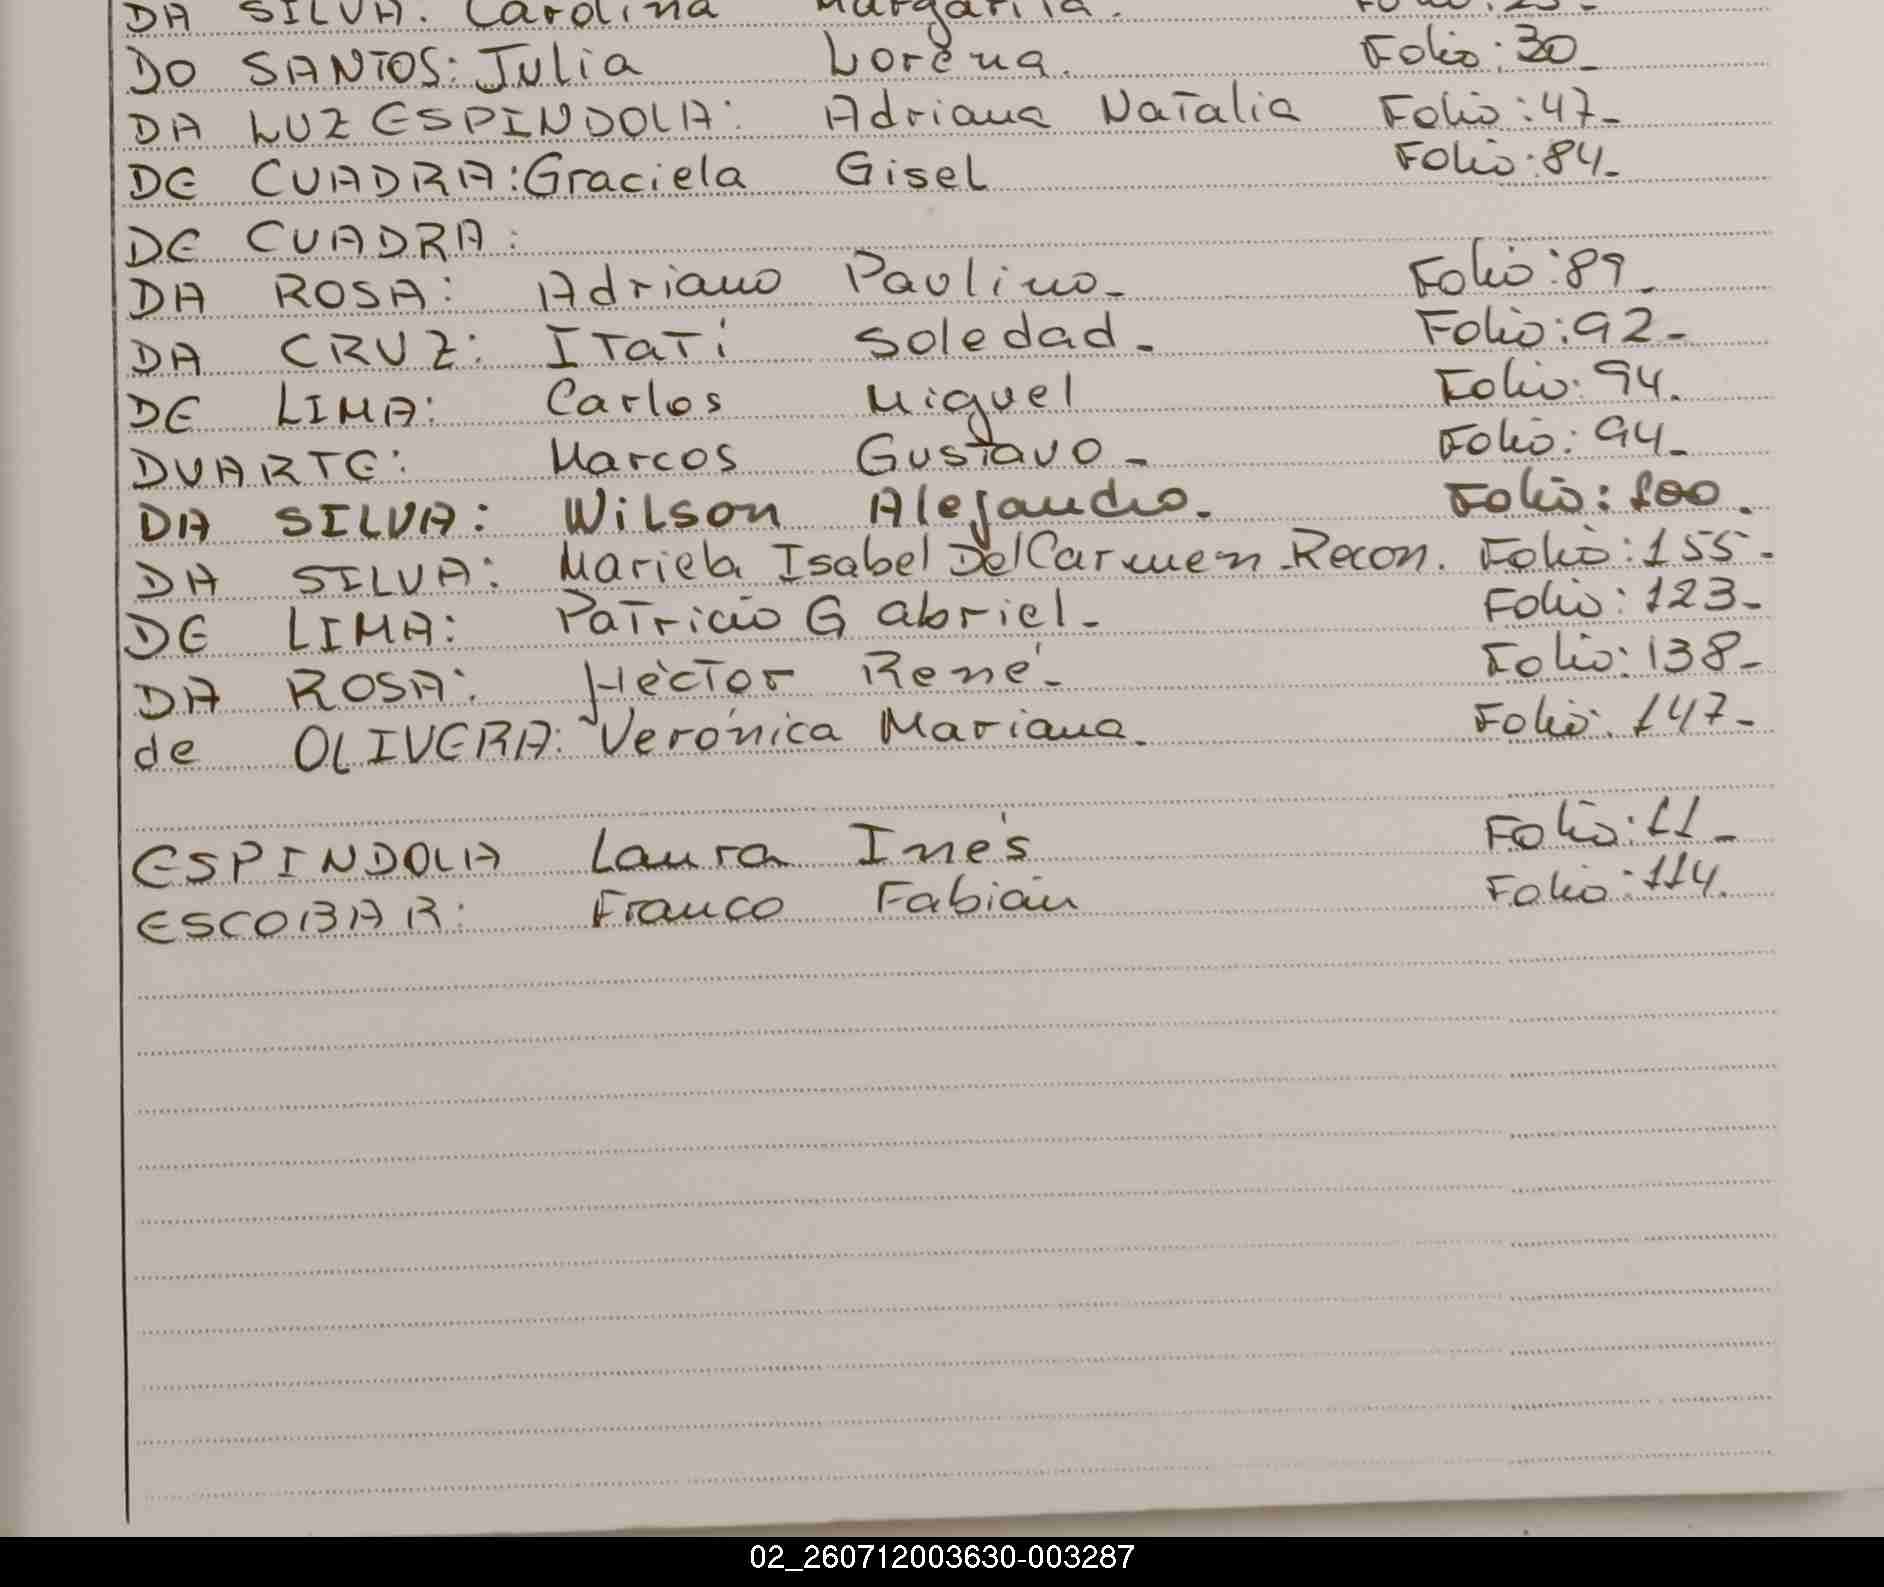 DA SILVA: Carolina Margarita.
DO SANTOS: Julia Lorena. Folio: 30_
DA LUZ ESPINDOLA: Adriana Natalia Folio: 47_
DE CUADRA: Graciela Gisel Folio: 84_
DE CUADRA:
DA ROSA: Adriano Paulino_ Folio: 89_
DA CRUZ: Itatí Soledad_ Folio: 92_
DE LIMA: Carlos Miguel Folio: 94.
DUARTE: Marcos Gustavo_ Folio: 94_
DA SILVA: Wilson Alejandro. Folio: 100.
DA SILVA: Mariela Isabel Del Carmen_Recon. Folio: 155_
DE LIMA: Patricio Gabriel_ Folio: 123_
DA ROSA: Héctor René_ Folio: 138_
de OLIVERA: Verónica Mariana. Folio: 147_
ESPINDOLA Laura Inés Folio: 11_
ESCOBAR: Franco Fabián Folio: 114.
02_260712003630-003287